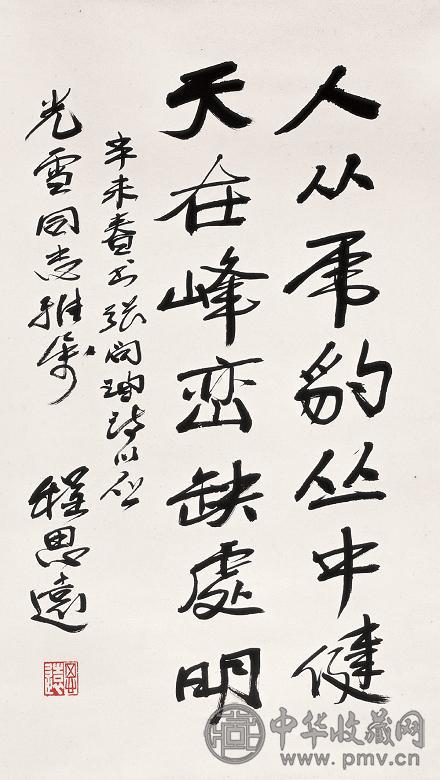 人从虎豹丛中健
天在峰峦缺處明
辛未春书张问陶诗以应
光雪同志雅属
程思遠
中华收藏网
www.pmv.cn